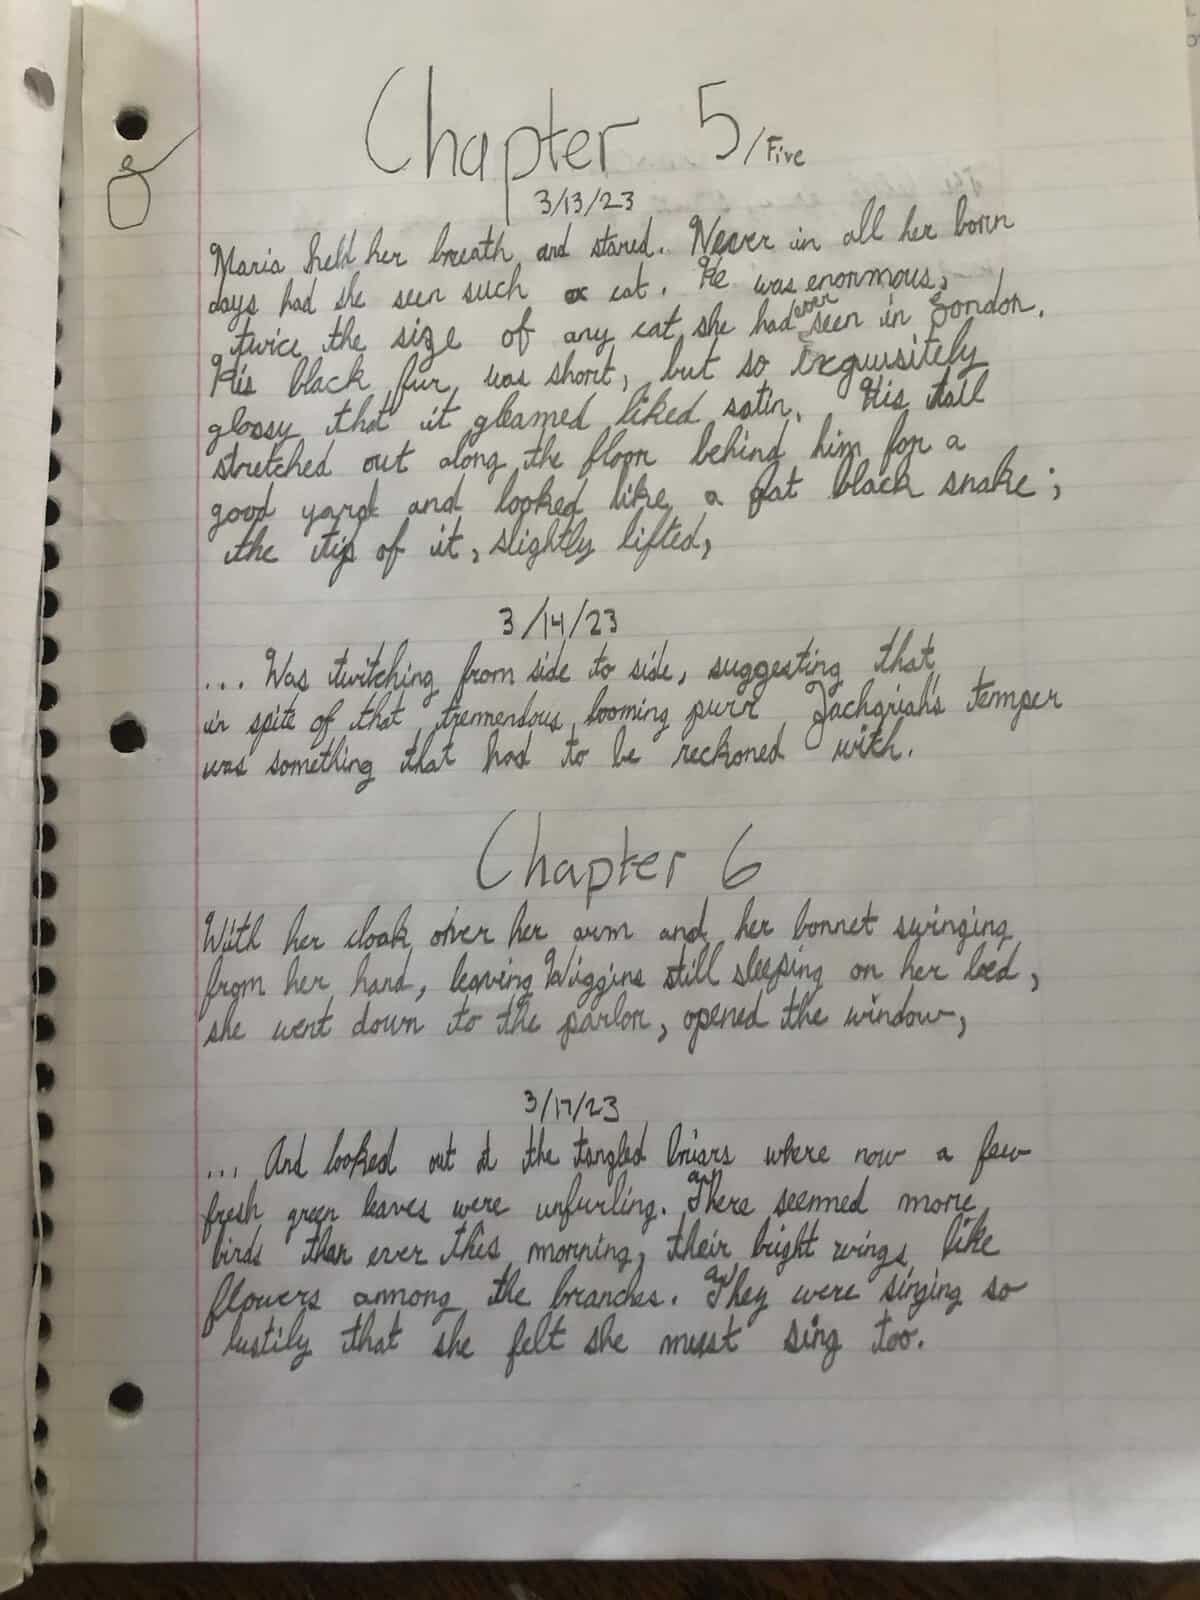 Chapter 5/Five
3/13/23
Maria held her breath and stared. Never in all her born
days had she seen such a cat. He was enormous,
twice the size of any cat she had ever seen in London.
His black fur was short, but so exquisitely
glossy that it gleamed liked satin. His tail
stretched out along the floor behind him for a
good yard and looked like a fat black snake;
the tip of it, slightly lifted,
3/14/23
... Was twitching from side to side, suggesting that
in spite of that tremendous booming purr Zachariah's temper
was something that had to be reckoned with.
Chapter 6
With her cloak over her arm and her bonnet swinging
from her hand, leaving Wiggins still sleeping on her bed,
she went down to the parlor, opened the window,
3/17/23
... And looked out at the tangled briars where now a few
fresh green leaves were unfurling. There seemed more
birds than ever this morning, their bright wings like
flowers among the branches. They were singing so
lustily that she felt she must sing too.